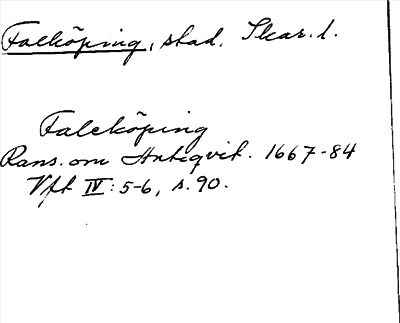 Falköping, stad. Skar. l.
Faleköping
Rans. om Antiqvit. 1667-84
Vft IV: 5-6, s. 90.